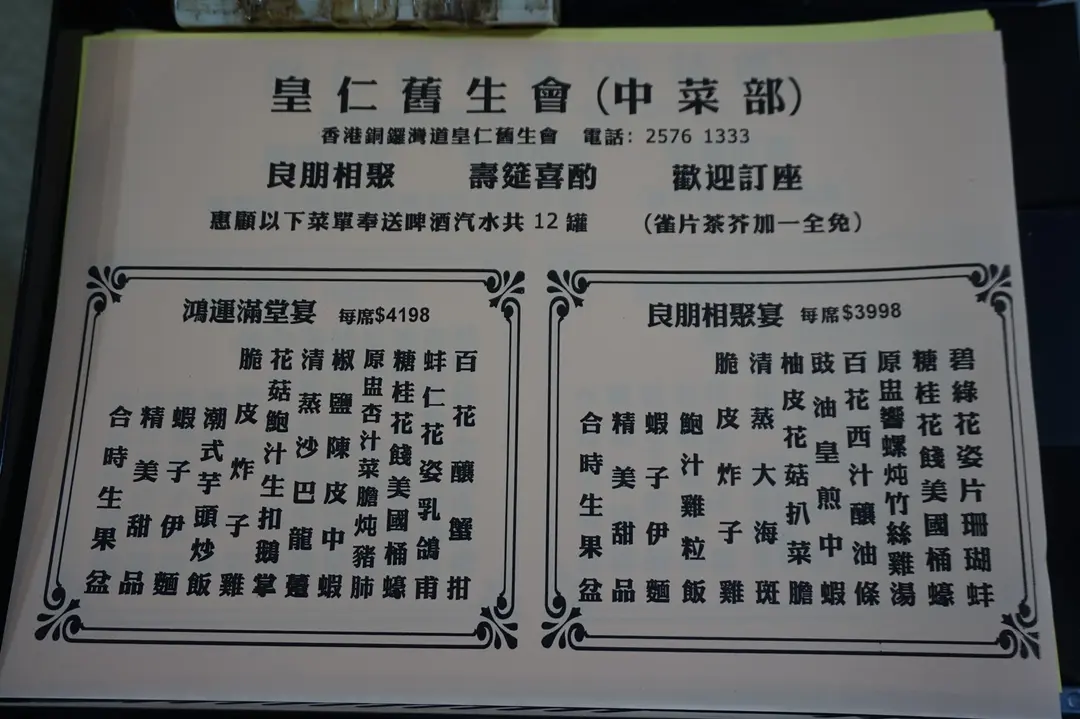 皇仁舊生會(中菜部)
香港銅鑼灣道皇仁舊生會 電話: 2576 1333
良朋相聚 壽筵喜酌 歡迎訂座
惠顧以下菜單奉送啤酒汽水共12罐 (雀片茶芥加一全免)
鴻運滿堂宴 每席$4198
百花釀蟹拑
蚌仁花姿乳鴿甫
糖桂花餞美國桶蠔
原盅杏汁菜膽炖豬肺
椒鹽陳皮中蝦
清蒸沙巴龍躉
花菇鮑汁生扣鵝掌
脆皮炸子雞
潮式芋頭炒飯
蝦子伊麵
精美甜品
合時生果盆
良朋相聚宴 每席$3998
碧綠花姿片珊瑚蚌
糖桂花餞美國桶蠔
原盅響螺炖竹絲雞湯
百花西汁釀油條
豉油皇煎中蝦
柚皮花菇扒菜膽
清蒸大海斑
脆皮炸子雞
鮑汁雞粒飯
蝦子伊麵
精美甜品
合時生果盆